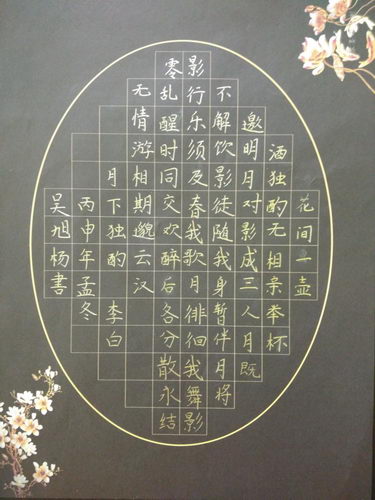 花间一壶
酒独酌无相亲举杯
邀明月对影成三人月既
不解饮影徒随我身暂伴月将
影行乐须及春我歌月徘徊我舞影
零乱醒时同交欢醉后各分散永结
无情游相期邈云汉
月下独酌 李白
丙申年孟冬
吴旭杨書